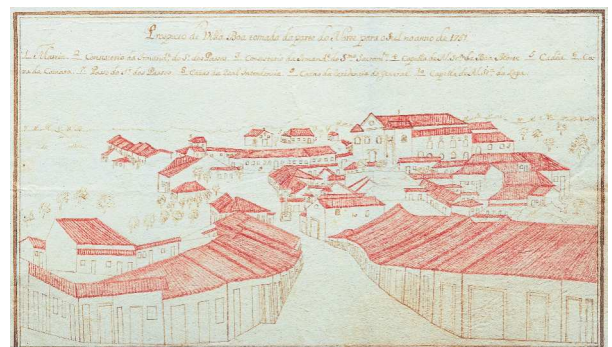 Prospecto de Villa Boa tomada da parte do Norte para o Sul no anno de 1751
1. Matriz. 2. Consistorio da Irmand.e do S. dos Passos. 3. Consistorio da Irmand.e do S.mo Sacram.to 4. Capella de N. Sr.a da Boa Morte. 5. Cadêa. 6. Ca-
za da Camera. 7. Passo do S.r dos Passos. 8. Cazas da Real Intendencia. 9. Cazas da do General. 10. Capella de N. Sr.a da Lapa.